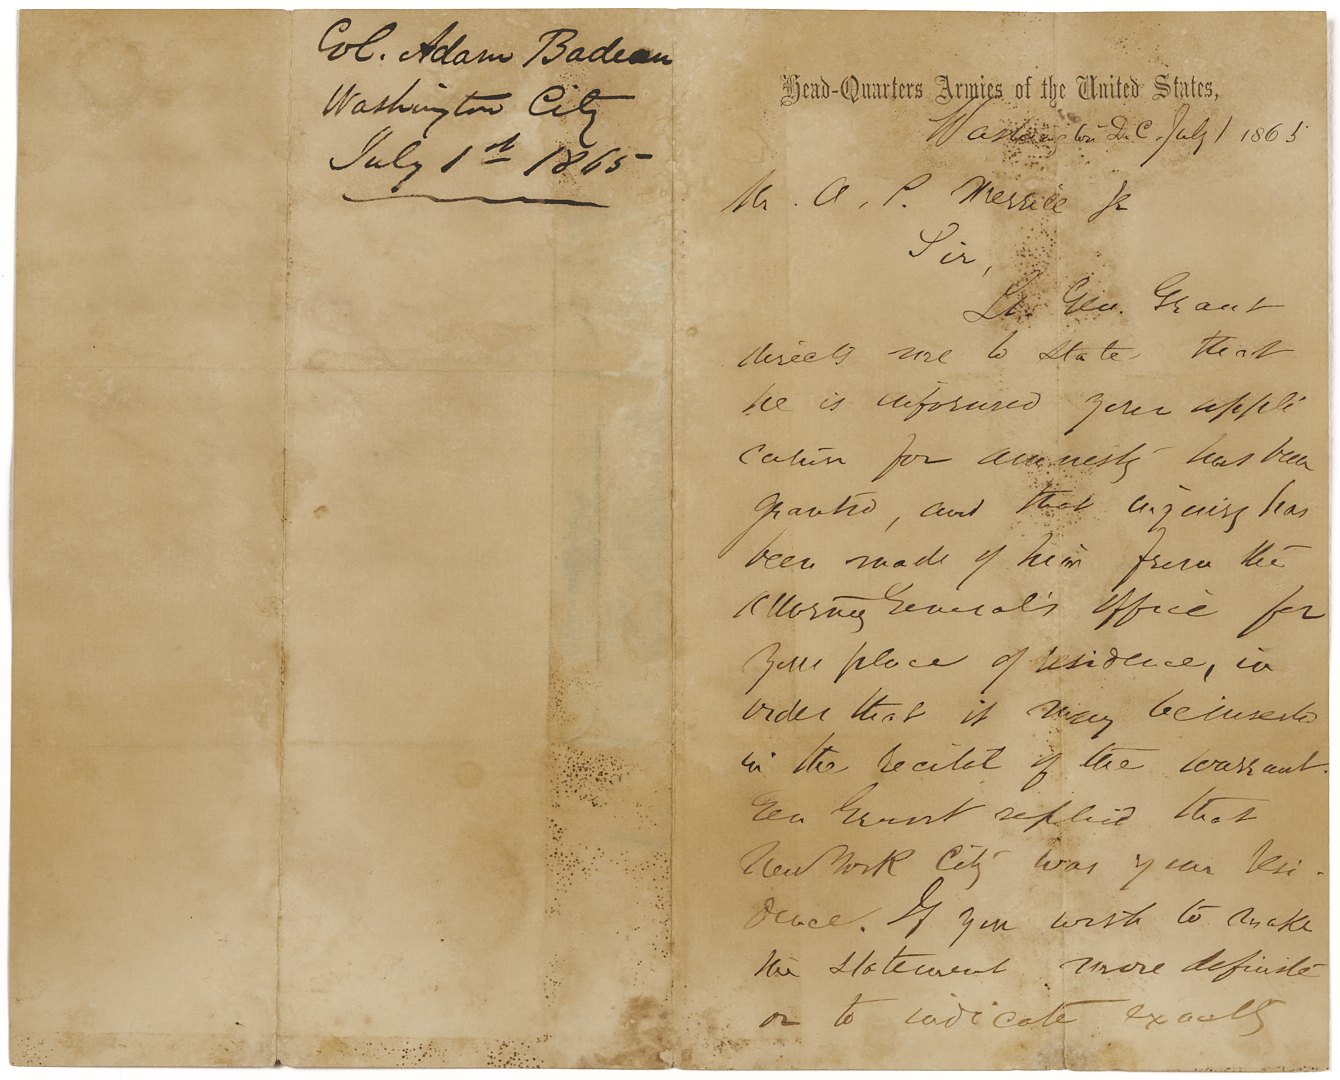 Col. Adam Badeau
Washington City
July 1st 1865
Head-Quarters Armies of the United States,
Washington D.C. July 1 1865
Mr. A. P. Merrill Jr
Sir,
Lt. Gen. Grant
directs me to state that
he is informed your appli
cation for amnesty has been
granted, and that inquiry has
been made of him from the
Attorney General's Office for
your place of residence, in
order that it may be inserted
in the recital of the warrant.
Gen Grant replied that
New York City was your resi-
dence. If you wish to make
the statement more definite
or to indicate exactly